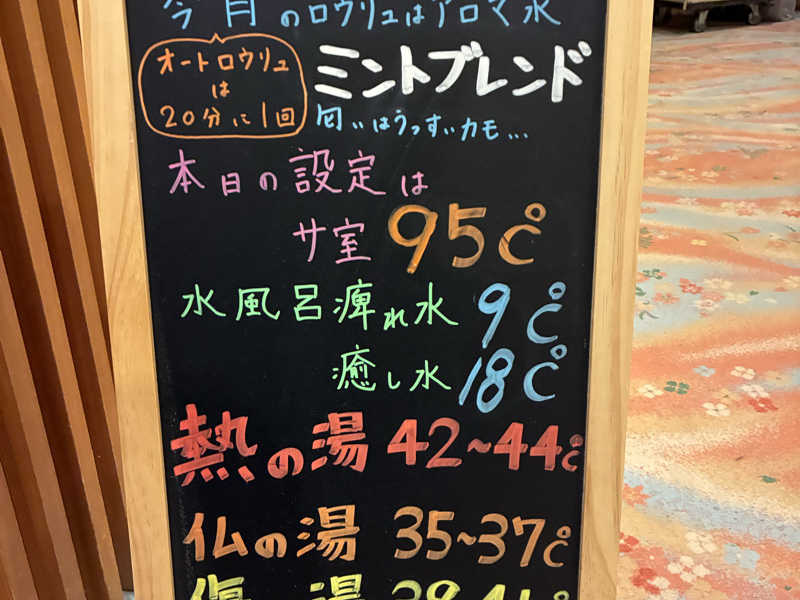 今月のロウリュはアロマ水
オートロウリュ
は
20分に1回
ミントブレンド
匂いはうっすいカモ...
本日の設定は
サ室 95℃
水風呂痺れ水 9℃
癒し水 18℃
熱の湯 42~44℃
仏の湯 35~37℃
の湯